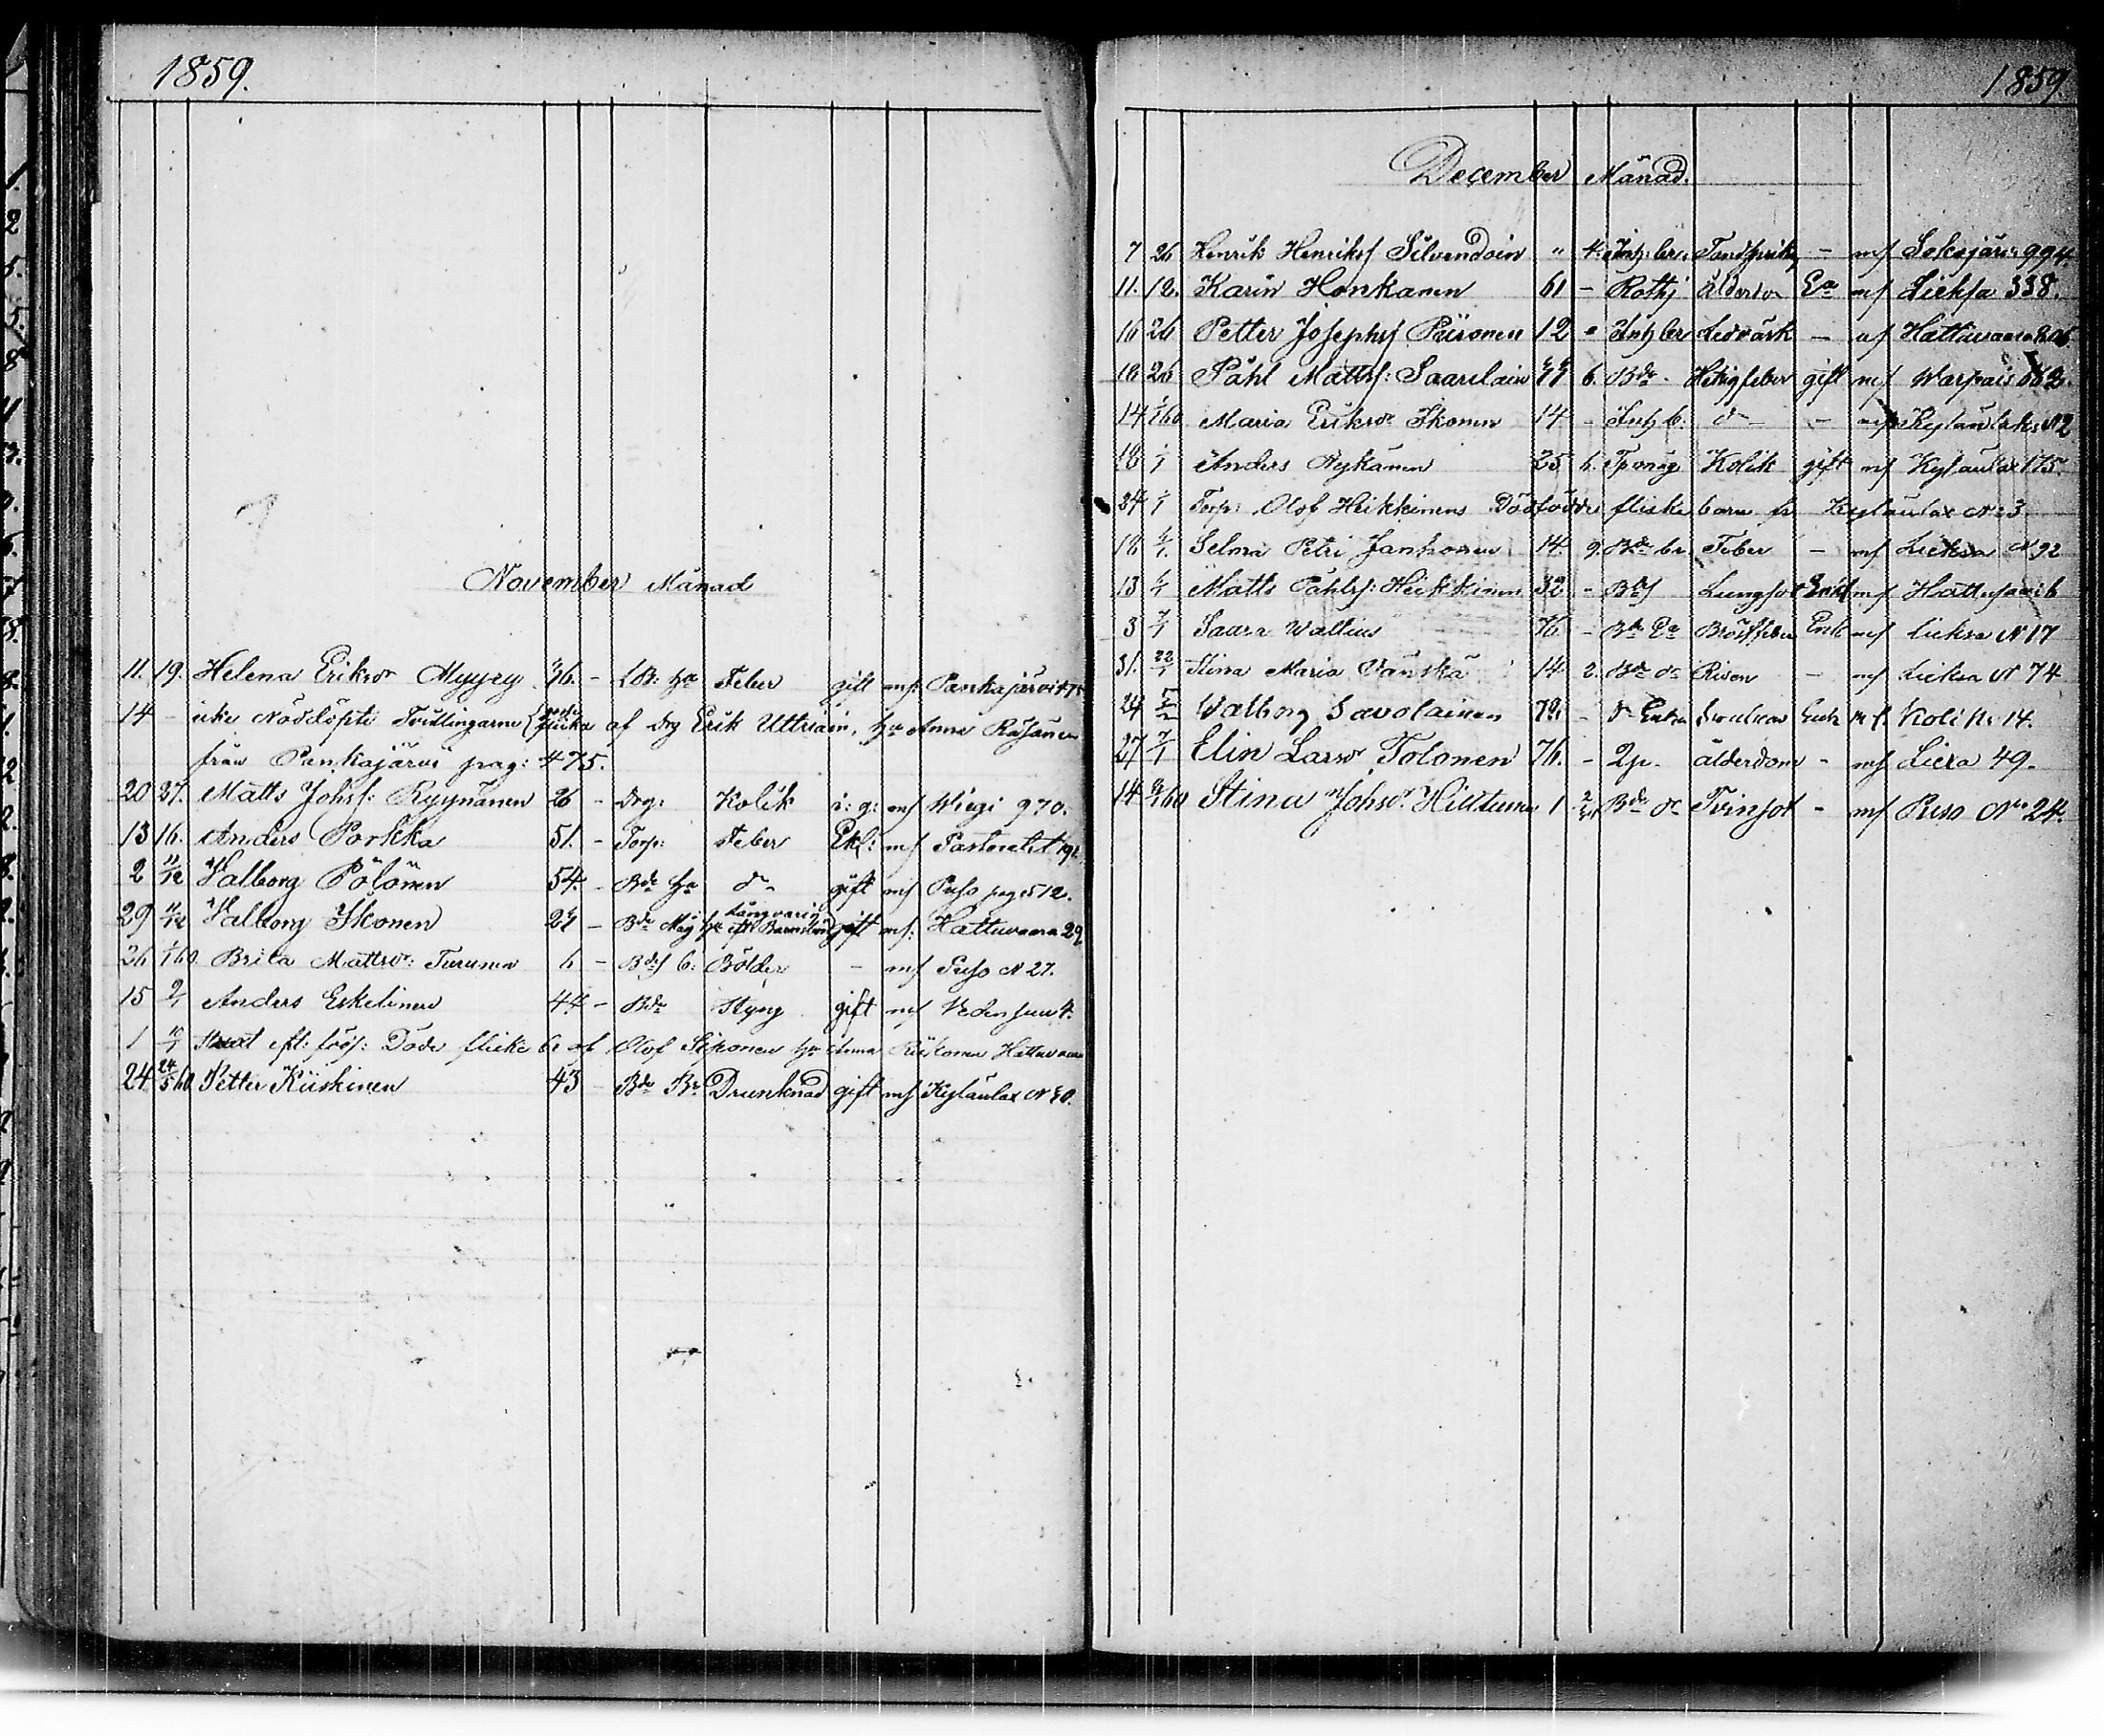 1859.
November Månad
11. 19. Helena Eriksdr Myyry 76. - hu Feber gift mf Pankajärvi
14 - icke Nöddöpte Tvillingarne af drg Erik Uttriain, hu Anna Räsänen
från Pankajärvi pag: 475.
20 27. Matts Johsf: Ryynänen 26 - Drg: Kolik i: g: mf Wiegi 970.
13 16. Anders Porkka 51. - Torp: Feber Ekl: mf Pastoratet
2 11/12 Valborg Pölönen 54. - Bde hu do gift mf Puso pag 512.
29 11/12 Valborg Ikonen - Bde Måg hu långvarig eft Barnsbörd gift mf: Hattuvaara 29
26 1/1 60. Brita Mattsdr: Turunen 6 - Bdes b: Bölder - mf Puso N 27.
15 2/1 Anders Eskelinen 44 - Bde Styng gift mf Vedensuu 4.
1 10/1 Straxt eft: föds: Döde flicke b: af Olof hu Anna Hattuvaara
24 24/5 60 Petter Kiiskinen 43 Bde Br Drunknad gift mf Kylänlax N 20.
1859
December Månad.
7 26 Henrik Henriksf Silvendoin " 4. Inh: br: - mf 994.
11. 12. Karin Honkanen 61 - Rothj Ålderdom Ea mf Lieksa 338.
16 26 Petter Josephsf Piironen 12 " Inh br Ledvärk - mf Hattuvaara
18 26 Påhl Mattsf: Saarelain 6. Bde. Hetsig feber gift mf Warpais
14 1/1 60 Maria Eriksdr Ikonen 14 - Inh b: do - mf Kylänlaks N 2
18 1/1 Anders Nykänen 25 6. Kolik gift mf Kylänlax 175.
24 1/1 Torp: Olof Heikkinens Dödfödde flicke barn fr Kylänlax No 3
18 4/1. Selma Petri Janhonen 14. 9. Bde br Feber - mf Lieksa N 92
13 6/1 Matts Påhlsf: Heikkinen 32 - Bdes Lungsot mf Hattusaari 6
3 7/1 Saara Wallius 76 - Bde Ea Bröstfeber Enk mf Lieksa N 17
31. 22/1 Stina Maria 14 2. Bde dr Risen - mf Lieksa N 74
24 5/2 Walborg Savolainen 72. - Enk mf. Koli No 14.
27 7/1 Elin Larsdr Tolonen 76. - ålderdom - mf Liexa 49.
14 60 Stina Johsdr Hiltunen 1 Bde dr Tvinsot - mf Puso No 24.